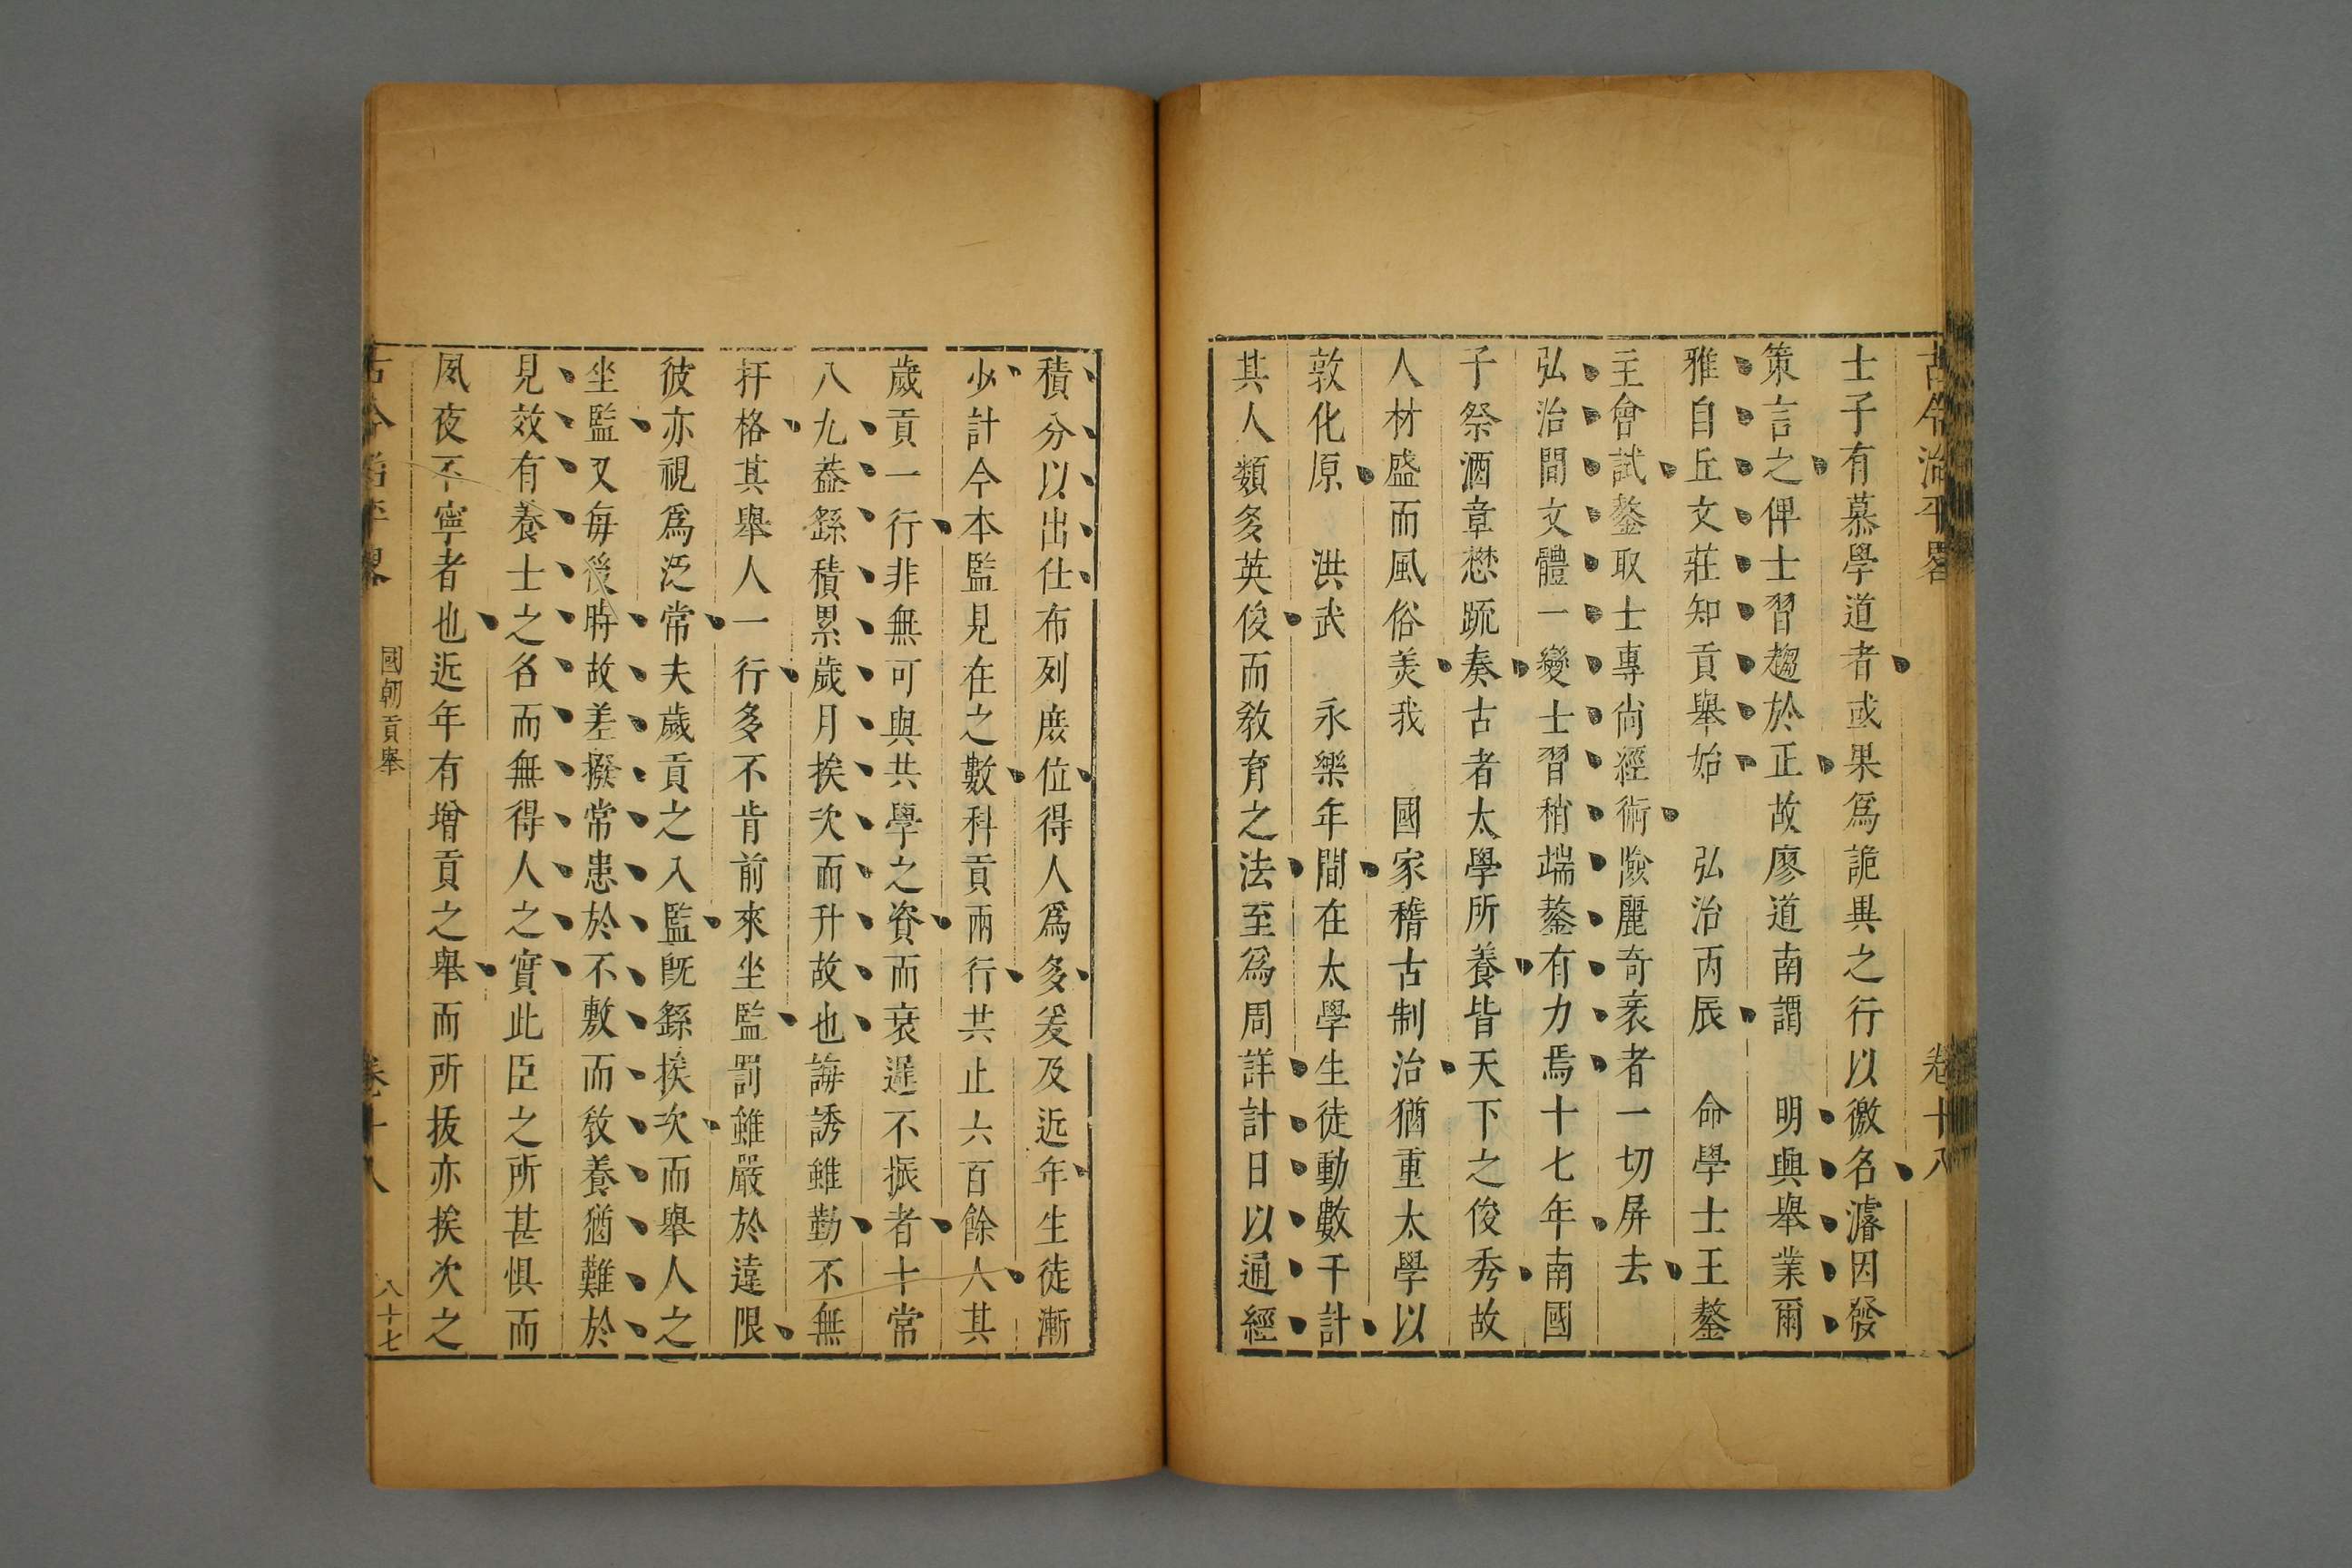 古今治平畧 卷十八
士子有慕學道者或果爲詭異之行以徼名濬因發
策言之俾士習趨於正故廖道南謂 明興舉業爾
雅自丘文莊知貢舉始 弘治丙辰 命學士王鏊
主會試鏊取士專尚經術險麗奇衺者一切屏去
弘治間文體一變士習稍端鏊有力焉十七年南國
子祭酒章懋疏奏古者太學所養皆天下之俊秀故
人材盛而風俗美我 國家稽古制治猶重太學以
敦化原 洪武 永樂年間在太學生徒動數千計
其人類多英俊而敎育之法至爲周詳計日以通經
積分以出仕布列庶位得人爲多爰及近年生徒漸
少計今本監見在之數科貢兩行共止六百餘人其
歲貢一行非無可與共學之資而衰遲不振者十常
八九葢繇積累歲月挨次而升故也誨誘雖勤不無
扞格其舉人一行多不肯前來坐監罰雖嚴於違限
彼亦視爲泛常夫歲貢之入監旣繇挨次而舉人之
坐監又每後時故差撥常患於不敷而敎養猶難於
見效有養士之名而無得人之實此臣之所甚惧而
夙夜不寧者也近年有增貢之舉而所拔亦挨次之
古今治平畧 國朝貢舉 卷十八 八十七